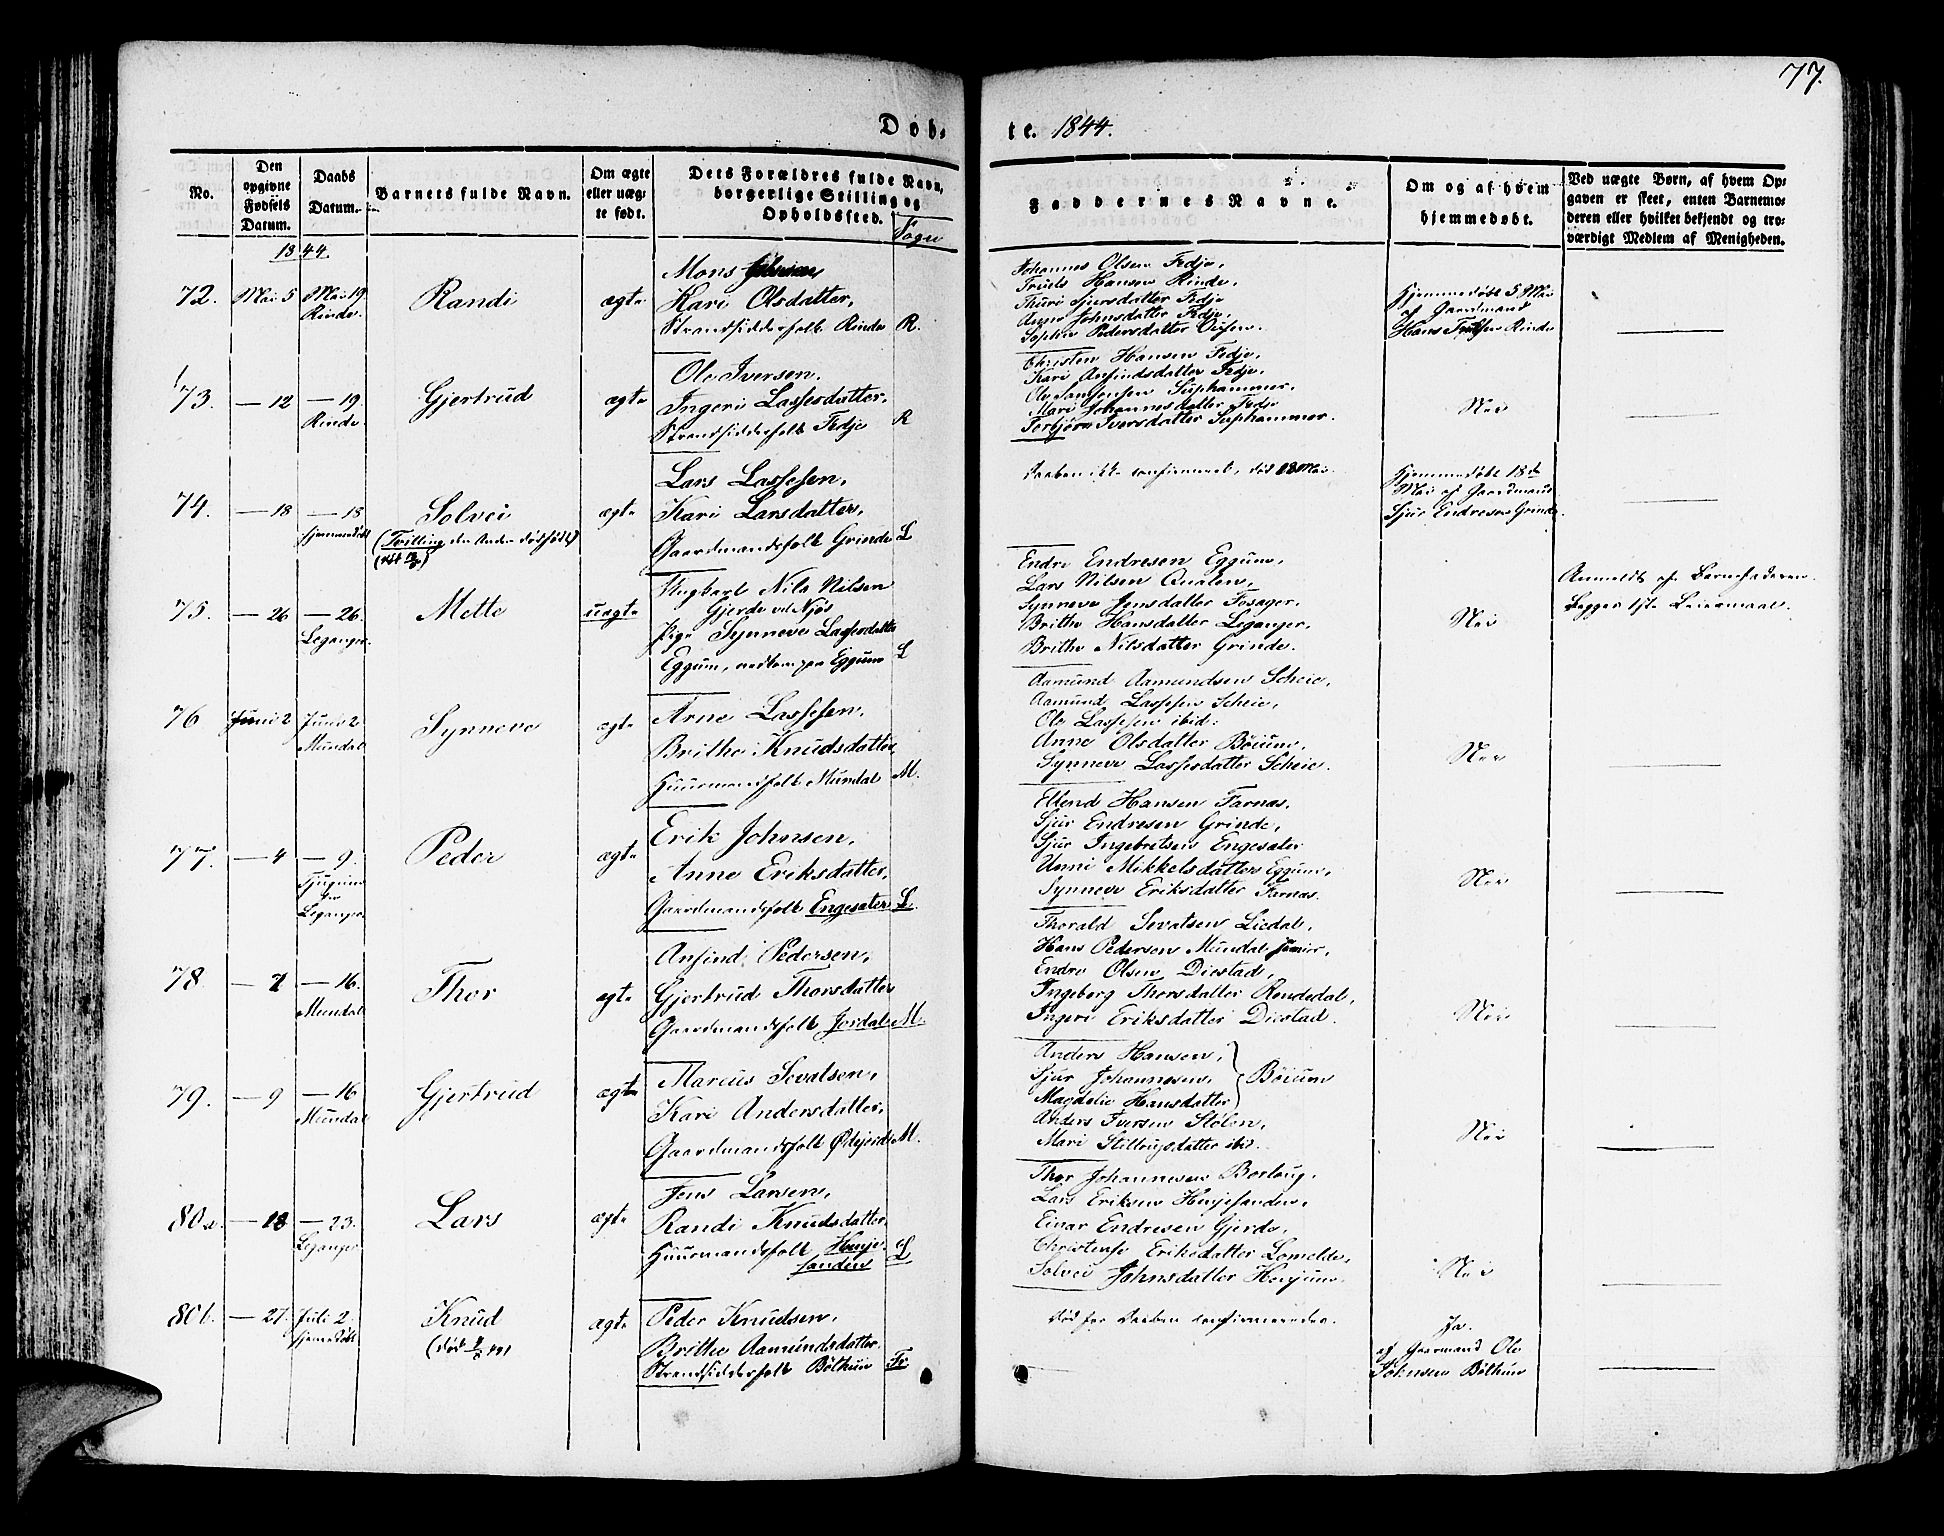 77.
Døb-
te. 1844.
No.
Den opgivne Fødsels Datum.
Daabs Datum.
Barnets fulde Navn.
Om ægte eller uægte født.
Dets Forældres fulde Navn, borgerlige Stilling og Opholdssted.
Sogn
Faddernes Navne.
Om og af hvem hjemmedøbt.
Ved uægte Børn, af hvem Opgaven er skeet, enten Barnemoderen eller hvilket bekjendt og troværdigt Medlem af Menigheden.
1844.
72. Mai 5 Mai 19 Rinde. Randi ægte
Mons
Kari Olsdatter,
Strandsidderfolk Rinde R.
Johannes Olsen Fedje,
Truls Hansen Rinde,
Thuri Sjursdatter Fedje
Anne Johnsdatter Fedje,
Sophie Pedersdatter
Hjemmedøbt 5 Mai
af Gaardmand
Hans Rinde
73. — 12 — 19. Rinde. Gjertrud ægte
Ole Iversen.
Ingeri Lassesdatter,
Strandsidderfolk Fedje R
Christen Hansen Fedje,
Kari Anfindsdatter Fedje,
Ole Suphammer.
Mari Johannesdatter Fedje
Torbjøro Iversdatter Suphammer.
Nei
74. — 18 — 18. hjemmedøbt Solvei ægte
(Tvilling den Anden dødfødt)
Lars Lassesen,
Kari Larsdatter,
Gaardmandsfolk Grinde L
Daaben ikke confirmeret, død 18 Mai.
Hjemmedøbt 18de
Mai af Gaardmand
Sjur Endresen Grinde.
75. — 26 — 26. Leganger. Mette uægte
Ungkarl Nils Nilsen
Gjerde ved Njøs
Pige Synneve Lassesdatter
Eggum, Eggum L
Endre Endresen Eggum,
Lars Nilsen Qualen,
Synneve Jensdatter Fosager.
Brithe Hansdatter Leganger,
Brithe Nilsdatter Grinde.
Nei
Anmeldt af Barnefaderen.
Begges 1ste Leiermaal.
76 Juni 2 Juni 2 Mundal Synneve ægte
Arne Lassesen.
Brithe Knudsdatter
Huusmandsfolk Mundal M.
Aamund Aamundsen Scheie,
Aamund Lassesen Scheie,
Ole Lassesen ibid:
Anne Olsdatter Bøium,
Synneve Lassesdatter Scheie.
Nei
77. — 4 — 9. Leganger. Peder ægte
Erik Johnsen,
Anne Eriksdatter,
Gaardmandsfolk Engesæter L.
Ellend Hansen Farnæs,
Sjur Endresen Grinde,
Sjur Ingebritsen Engesæter
Unni Mikkelsdatter Eggum,
Synneve Eriksdatter Farnæs.
Nei
78 — 7 — 16. Mundal Thor ægte
Anfind Pedersen,
Gjertrud Thorsdatter
Gaardmandsfolk Jordal M.
Thorald Sevatsen Liedal,
Hans Pedersen Mundal junior,
Endre Olsen Distad,
Ingeborg Thorsdatter Rendedal,
Ingeri Eriksdatter Distad.
Nei
79. — 9 — 16 Mundal Gjertrud ægte
Marcus Sevatsen,
Kari Andersdatter,
Gaardmandsfolk Ødejord M.
Anders Hansen,
Sjur Johannesen, Bøium
Magdelie Hansdatter
Anders Iversen Stølen,
Mari Stillougsdatter ibid.
Nei
80a. — 18 — 23. Leganger. Lars ægte
Jens Larsen,
Randi Knudsdatter
Huusmandsfolk Henjesanden L
Thor Johannesen Borlaug,
Lars Eriksen Henjesanden,
Einar Endresen Gjerde,
Christense Eriksdatter Lomelde,
Solvei Johnsdatter Henjum.
Nei
80b. — 27. Juli 2. hjemmedøbt Knud ægte
Peder Knudsen,
Brithe Aamundsdatter
Strandsidderfolk Bølhun Fr
død før Daaben confirmeredes.
Ja.
af Gaarmand Ole
Johnsen Bølhun